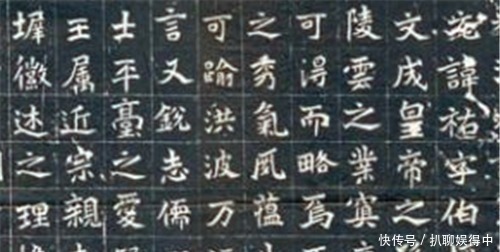 諱祐字伯
文成皇帝之
陵雲之業寘
可得而略焉
之秀氣風蘊
可踰洪波万
言又銳志儒
士平臺之愛
王属近宗親
墀徽述之理
快传号／扒聊娱得中